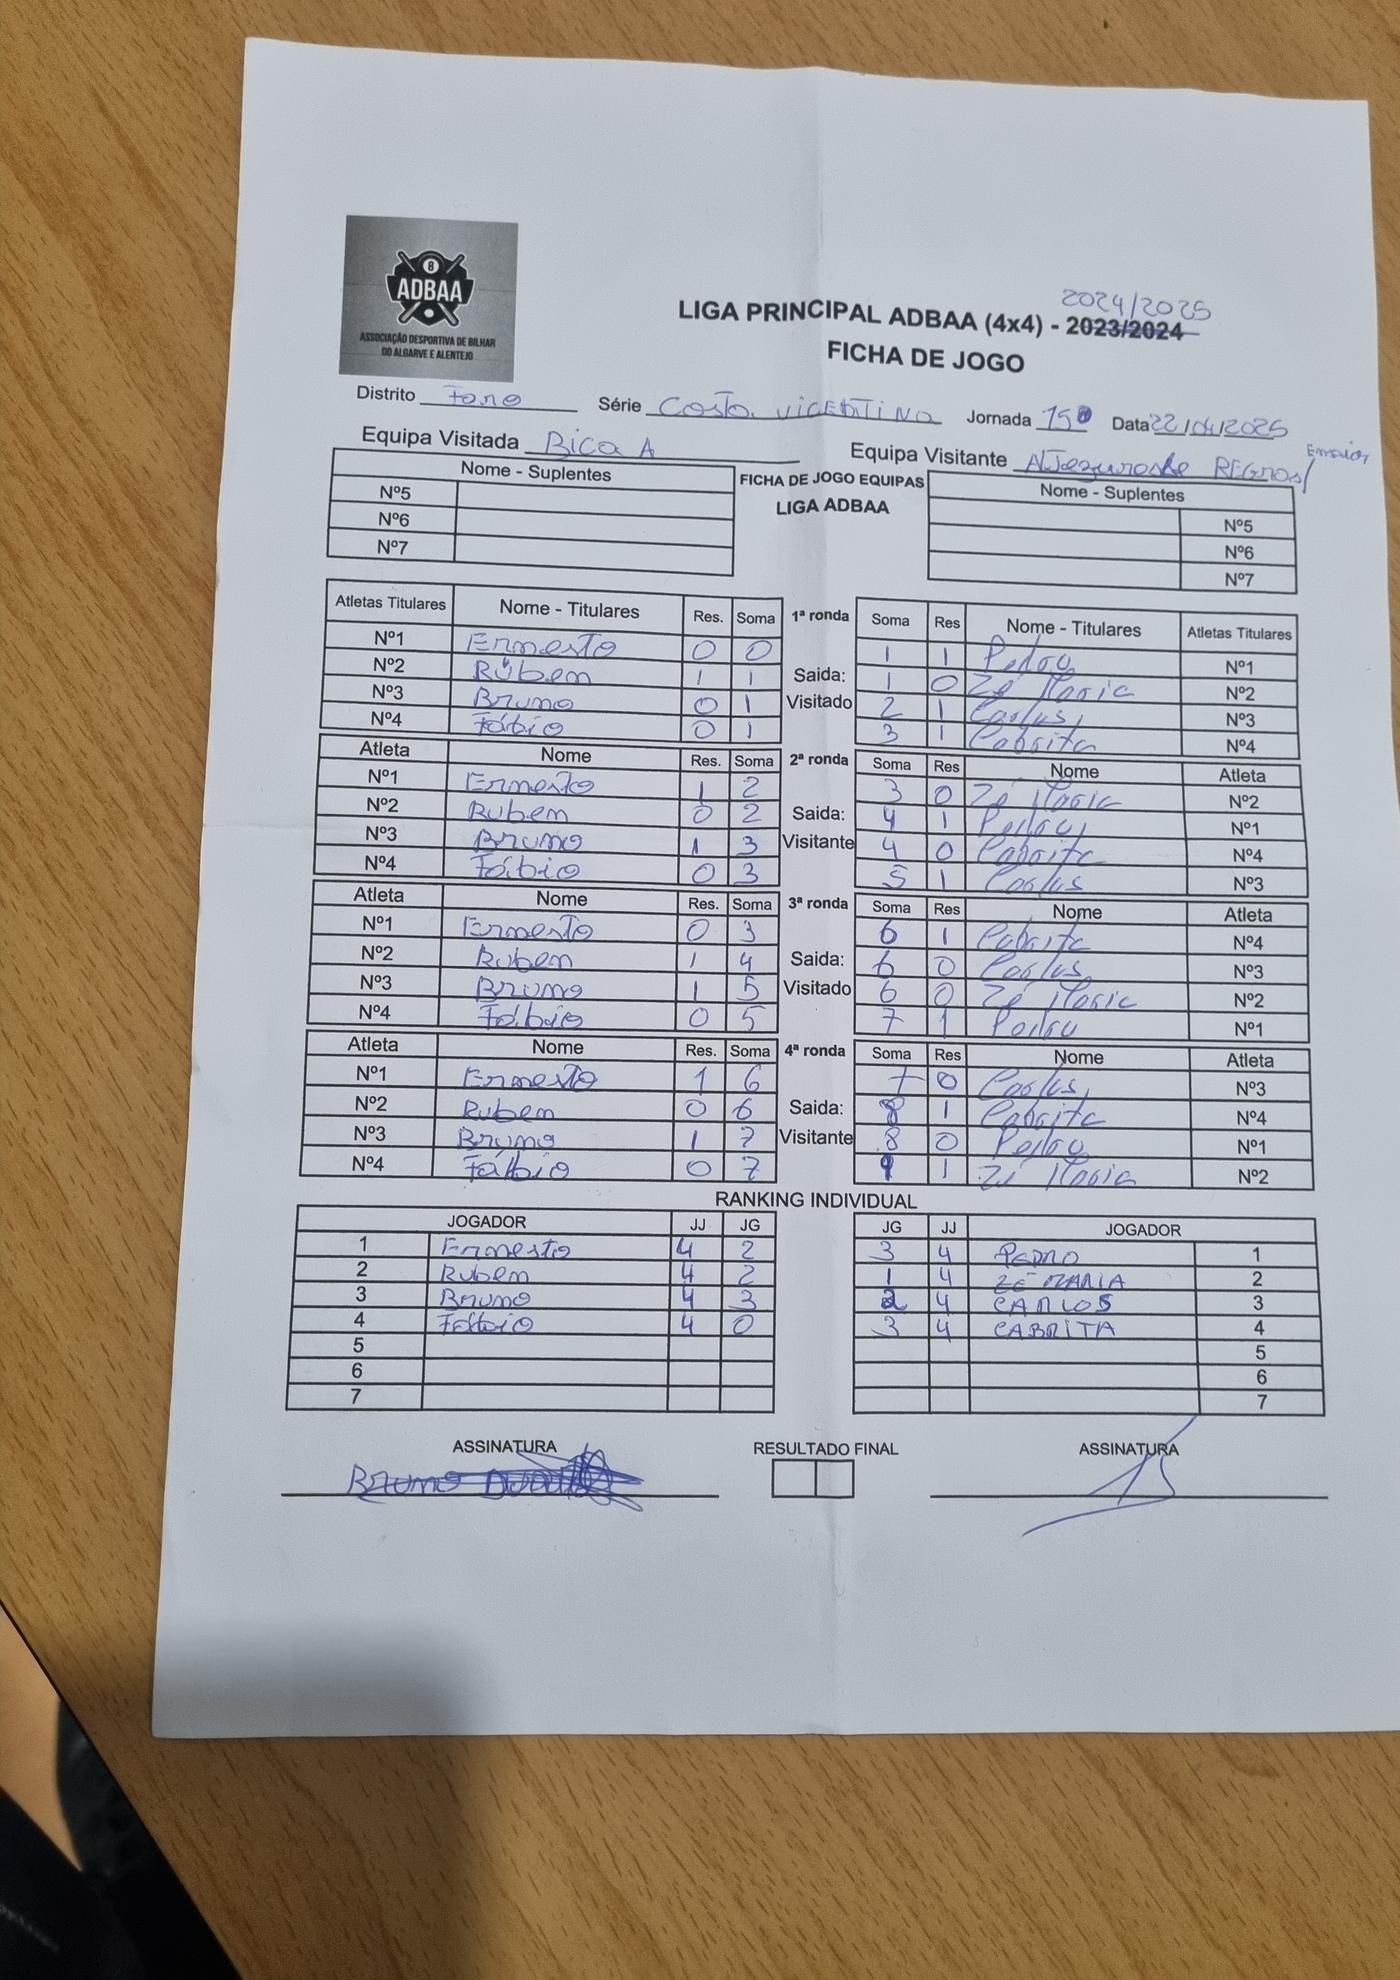 8
ADBAA
ASSOCIAÇÃO DESPORTIVA DE BILHAR
DO ALGARVE E ALENTEJO
2024/2025
LIGA PRINCIPAL ADBAA (4x4) - 2023/2024
FICHA DE JOGO
Distrito Faro Série Costa VICENTINA Jornada 15ª Data 22/04/2025
Equipa Visitada Bica A Equipa Visitante
Nome - Suplentes FICHA DE JOGO EQUIPAS Nome - Suplentes
Nº5 LIGA ADBAA Nº5
Nº6 Nº6
Nº7 Nº7
Atletas Titulares Nome - Titulares Res. Soma 1ª ronda Soma Res Nome - Titulares Atletas Titulares
Nº1 Ernesto 0 0 1 1 Pedro Nº1
Nº2 Rúbem 1 1 Saida: 1 0 Zé Maria Nº2
Nº3 Bruno 0 1 Visitado 2 1 Carlos Nº3
Nº4 Fábio 0 1 3 1 Cabrita Nº4
Atleta Nome Res. Soma 2ª ronda Soma Res Nome Atleta
Nº1 Ernesto 1 2 3 0 Zé Maria Nº2
Nº2 Rubem 0 2 Saida: 4 1 Pedro Nº1
Nº3 Bruno 1 3 Visitante 4 0 Cabrita Nº4
Nº4 Fábio 0 3 5 1 Carlos Nº3
Atleta Nome Res. Soma 3ª ronda Soma Res Nome Atleta
Nº1 Ernesto 0 3 6 1 Cabrita Nº4
Nº2 Rubem 1 4 Saida: 6 0 Carlos Nº3
Nº3 Bruno 1 5 Visitado 6 0 Zé Maria Nº2
Nº4 Fábio 0 5 7 1 Pedro Nº1
Atleta Nome Res. Soma 4ª ronda Soma Res Nome Atleta
Nº1 Ernesto 1 6 7 0 Carlos Nº3
Nº2 Rubem 0 6 Saida: 8 1 Cabrita Nº4
Nº3 Bruno 1 7 Visitante 8 0 Pedro Nº1
Nº4 Fábio 0 7 9 1 Zé Maria Nº2
RANKING INDIVIDUAL
JOGADOR JJ JG JG JJ JOGADOR
1 Ernesto 4 2 3 4 PEDRO 1
2 Rubem 4 2 1 4 ZÉ MARIA 2
3 Bruno 4 3 2 4 CARLOS 3
4 Fábio 4 0 3 4 CABRITA 4
5 5
6 6
7 7
ASSINATURA RESULTADO FINAL ASSINATURA
Bruno